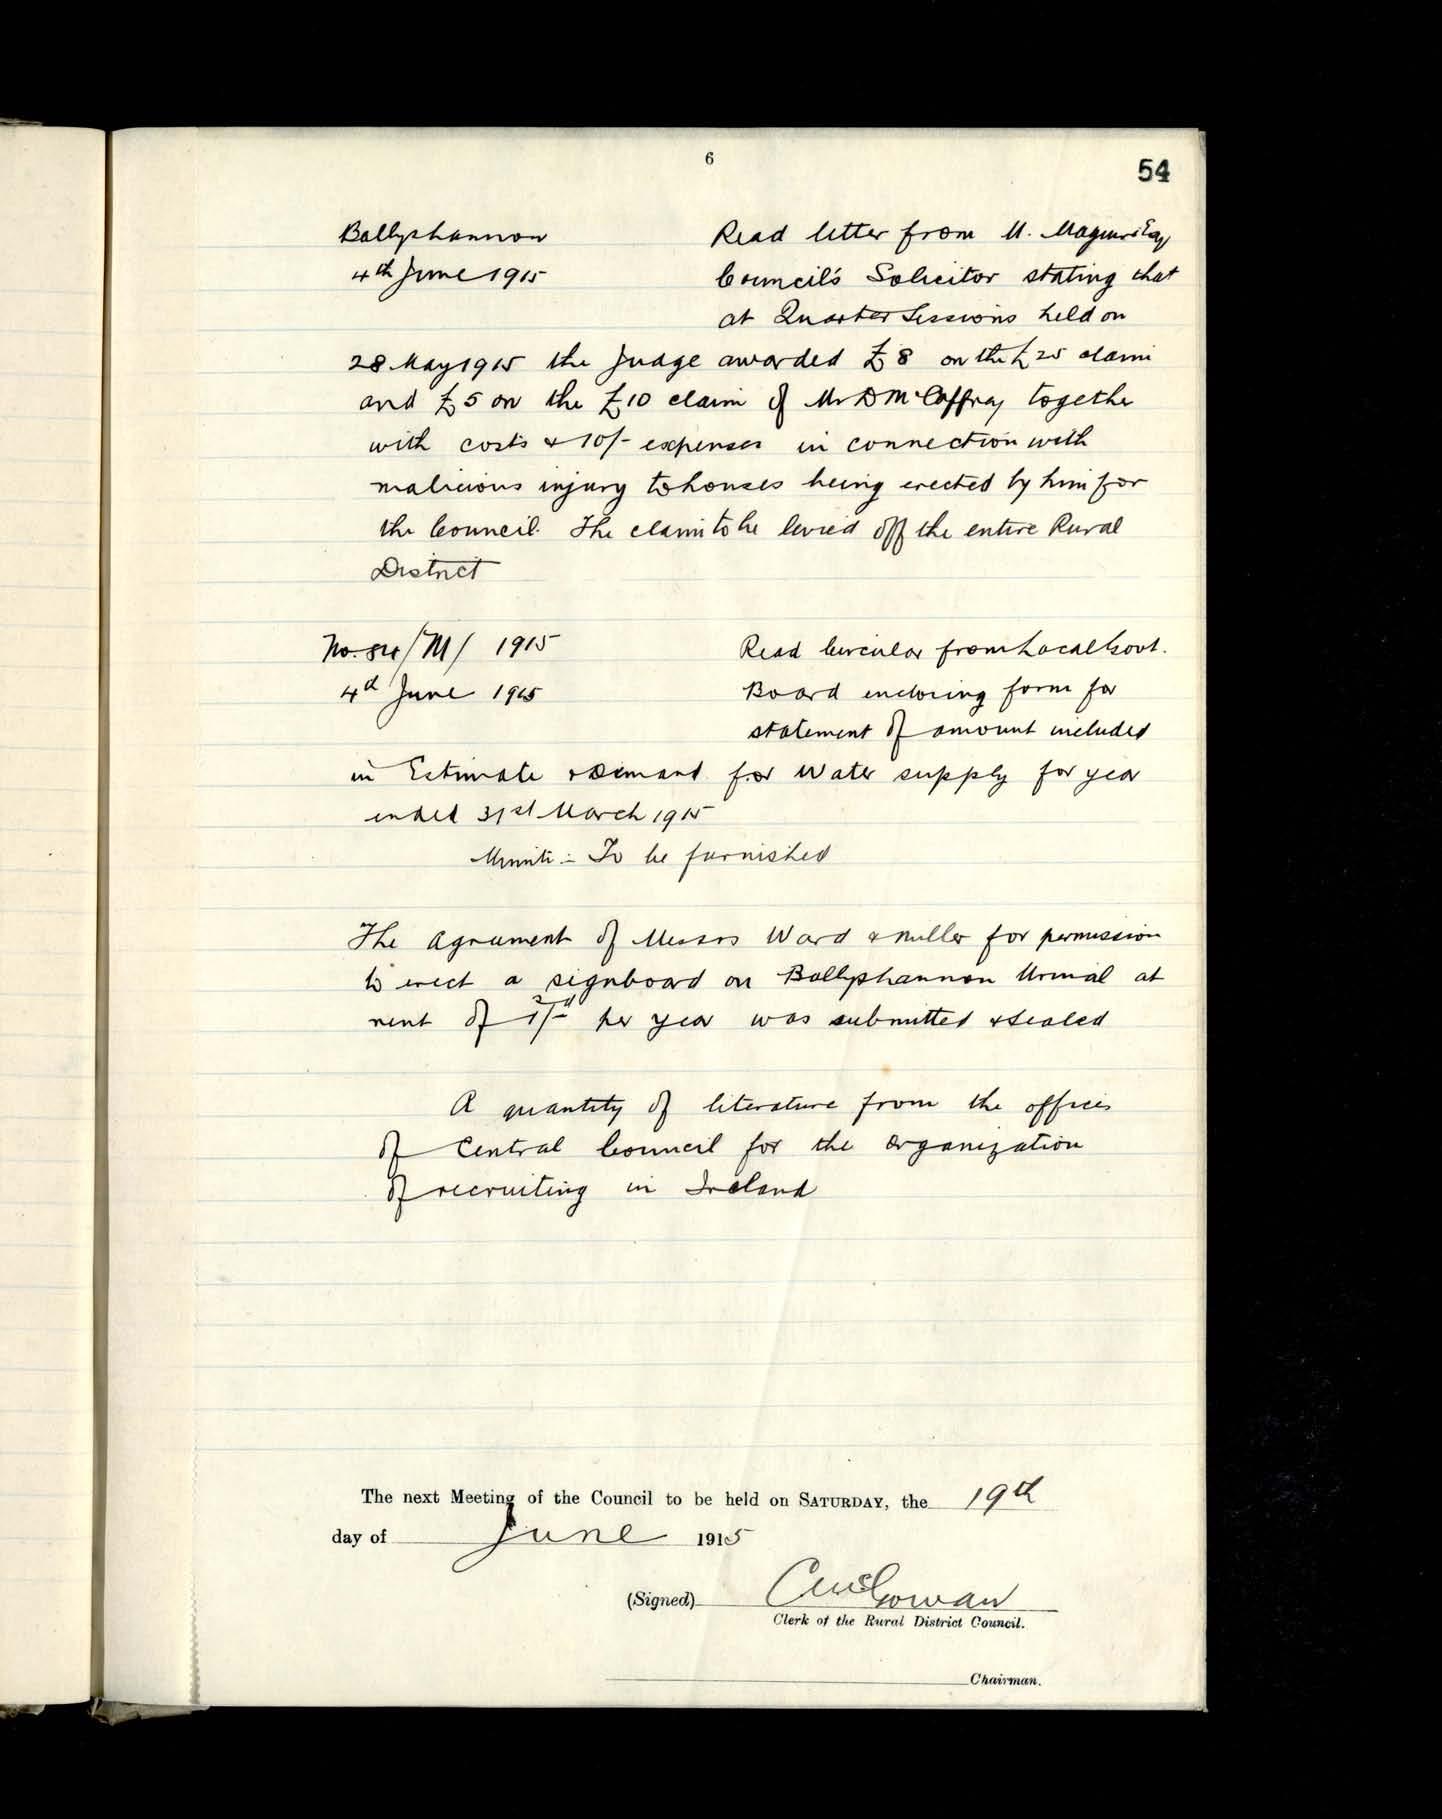 6
54
Ballyshannon
4th June 1915
Read letter from M. Maguire Esq
Council's Solicitor stating that
at Quarter Sessions held on
28 May 1915 the Judge awarded £8 on the £25 claim
and £5 on the £10 claim of Mr D McCaffrey together
with costs & 10/- expenses in connection with
malicious injury to houses being erected by him for
the Council. The claim to be levied off the entire Rural
District
No. 84/M/ 1915
4th June 1915
Read Circular from Local Govt.
Board enclosing form for
statement of amount included
in Estimate & Demand for Water supply for year
ended 31st March 1915
Minute :- To be furnished
The Agreement of Messrs Ward & Miller for permission
to erect a signboard on Ballyshannon Urinal at
rent of 1/- per year was submitted & sealed
A quantity of literature from the offices
of Central Council for the organization
of recruiting in Ireland
The next Meeting of the Council to be held on SATURDAY, the 19th
day of June 1915
(Signed) C McGowan
Clerk of the Rural District Council.
Chairman.